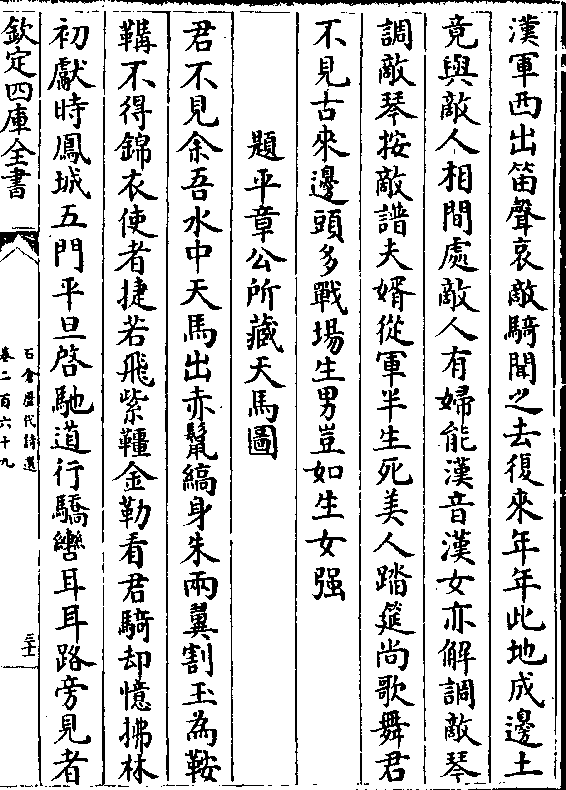 漢軍西出笛聲哀敵騎聞之去復來年年此地成邊土
竟與敵人相間處敵人有婦能漢音漢女亦解調敵琴
調敵琴按敵譜夫婿從軍半生死美人踏筵尚歌舞君
不見古來邊頭多戰場生男豈如生女强
題平章公所藏天馬圖
君不見余吾水中天馬出赤鬣縞身朱兩翼割玉為鞍
鞲不得錦衣使者捷若飛紫韁金勒看君騎却憶拂林
初獻時鳳城五門平旦啓馳道行驕轡耳耳路旁見者
欽定四庫全書
石倉歷代詩選
卷二百六十九
三十